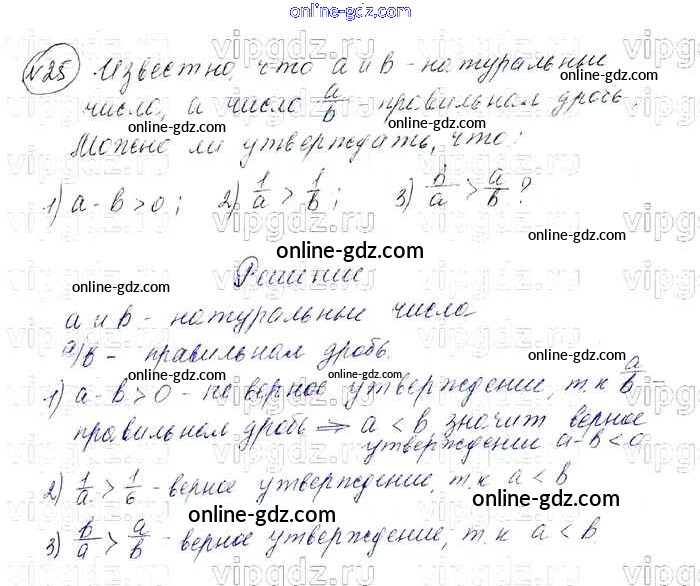 online-gdz.com
№25 Известно, что a и b - натуральные
число, а число a/b - правильная дробь.
Можно ли утверждать, что:
1) a - b > 0; 2) 1/a > 1/b; 3) b/a > a/b?
online-gdz.com
Решение
a и b - натуральные число
a/b - правильная дробь.
1) a - b > 0 - не верное утверждение, т.к a/b -
правильная дробь ⇒ a < b, значит верное
утверждении a - b < 0
2) 1/a > 1/6 - верное утверждение, т.к a < b
3) b/a > a/b - верное утверждение, т.к a < b
online-gdz.com
vipgdz.ru